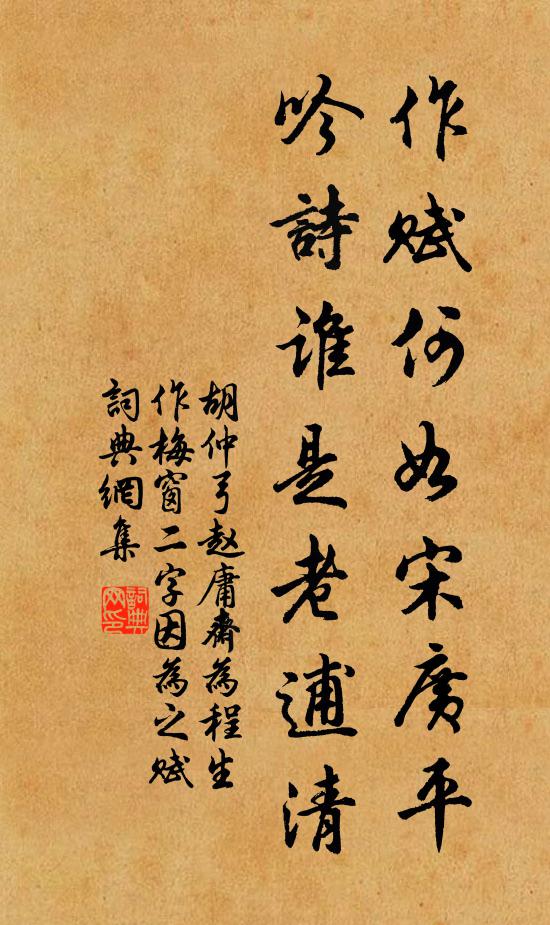 作赋何如宋廣平
吟詩谁是老逋清
胡仲弓赵庸齋為程生
作梅窗二字因為之赋
詞典網集
詞典网印